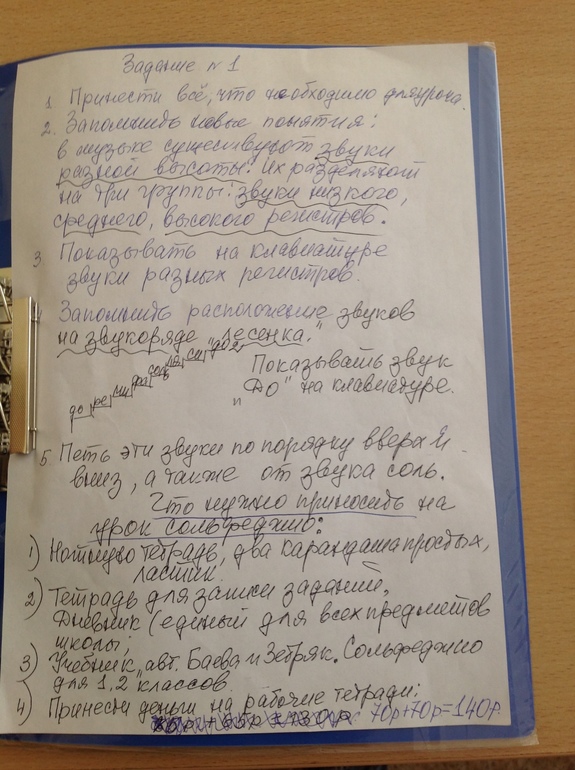 Задание № 1
1. Принести всё, что необходимо для урока.
2. Запомнить новые понятия:
в музыке существуют звуки
разной высоты. Их разделяют
на три группы: звуки низкого,
среднего, высокого регистров.
3 Показывать на клавиатуре
звуки разных регистров.
4 Запомнить расположение звуков
на звукоряде „лесенка."
до ре ми фа соль ля си до
Показывать звук
„До" на клавиатуре.
5. Петь эти звуки по порядку вверх и
вниз, а также от звука соль.
Что нужно приносить на
урок сольфеджио:
1) Нотную тетрадь, два карандаша простых,
ластик.
2) Тетрадь для записи заданий,
Дневник (единый для всех предметов
школы;
3) Учебник, авт. Баева и Зебряк. Сольфеджио
для 1,2 классов.
4) Принести деньги на рабочие тетради:
70р+70р=140р.